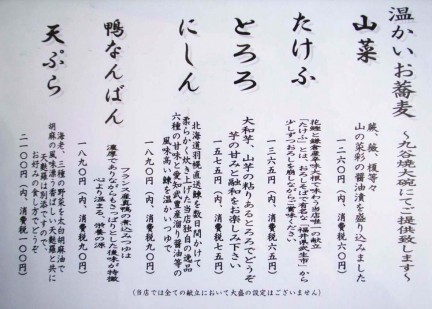 温かいお蕎麦
〜九谷焼大碗にてご提供致します〜
山菜
蕨、薇、榎茸々
山の菜彩の醤油漬を盛り込みました
一二六〇円（内、消費税六〇円）
たけふ
花鰹と鎌倉産辛味大根で味わう当店唯一の献立
「たけふ」とは、おろしそばで有名な「福井県武生市」から
少しずつおろしを崩しながらご賞味ください。
一三六五円（内、消費税六五円）
とろろ
大和芋、山芋の粘りあるとろろでどうぞ
芋の甘みと融和をお楽しみ下さい
一五七五円（内、消費税七五円）
にしん
北海道羽幌直送鰊を数日間かけて
柔らかく炊き上げた当店独自の逸品
六種の甘味と愛知武豊産溜り醤油等の
風味高い鰊を温かいつゆで。
一八九〇円（内、消費税九〇円）
鴨なんばん
フランス産真鴨の煮込みつゆは
濃厚でありながらもさっぱりとした後味が特徴
心より温まる、栄養の源
一八九〇円（内、消費税九〇円）
天ぷら
海老、三種の野菜を太白胡麻油で
胡麻の風味漂う香ばしい天麩羅と共に
天麩羅は別添えです
お好みの食し方でどうぞ
二一〇〇円（内、消費税一〇〇円）
（当店では全ての献立において大盛の設定はございません）